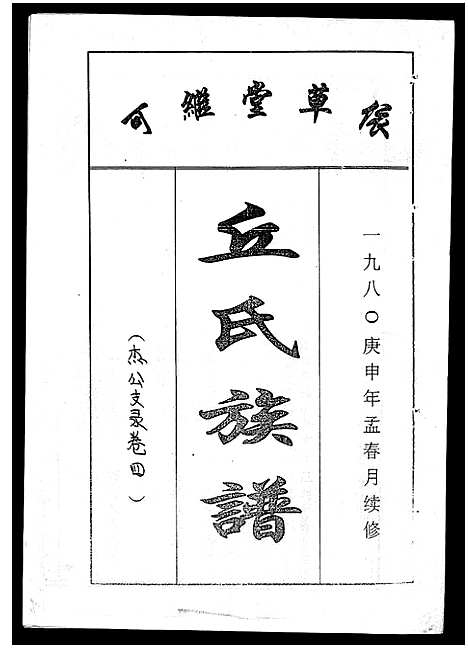 草堂維
一九八〇庚申年孟春月续修
丘氏族譜
(杰公支录卷四)